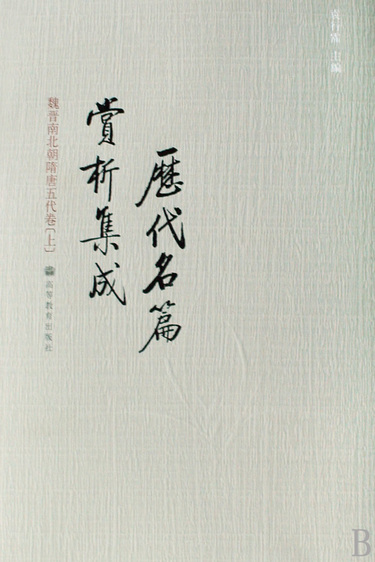 袁行霈 主编
歷代名篇
賞析集成
魏晋南北朝隋唐五代卷〔上〕
高等教育出版社
B